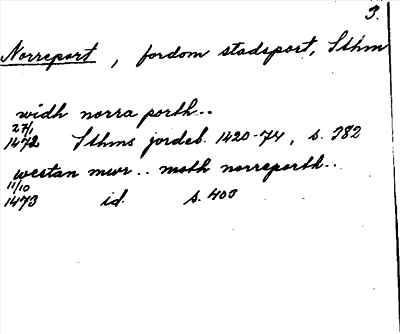 3.
Norreport, fordom stadsport, Sthm
widh norra porth..
27/1
1472 Sthms jordeb. 1420-74, s. 382
westan mwr.. moth norreporth..
11/10
1473 id. s. 400